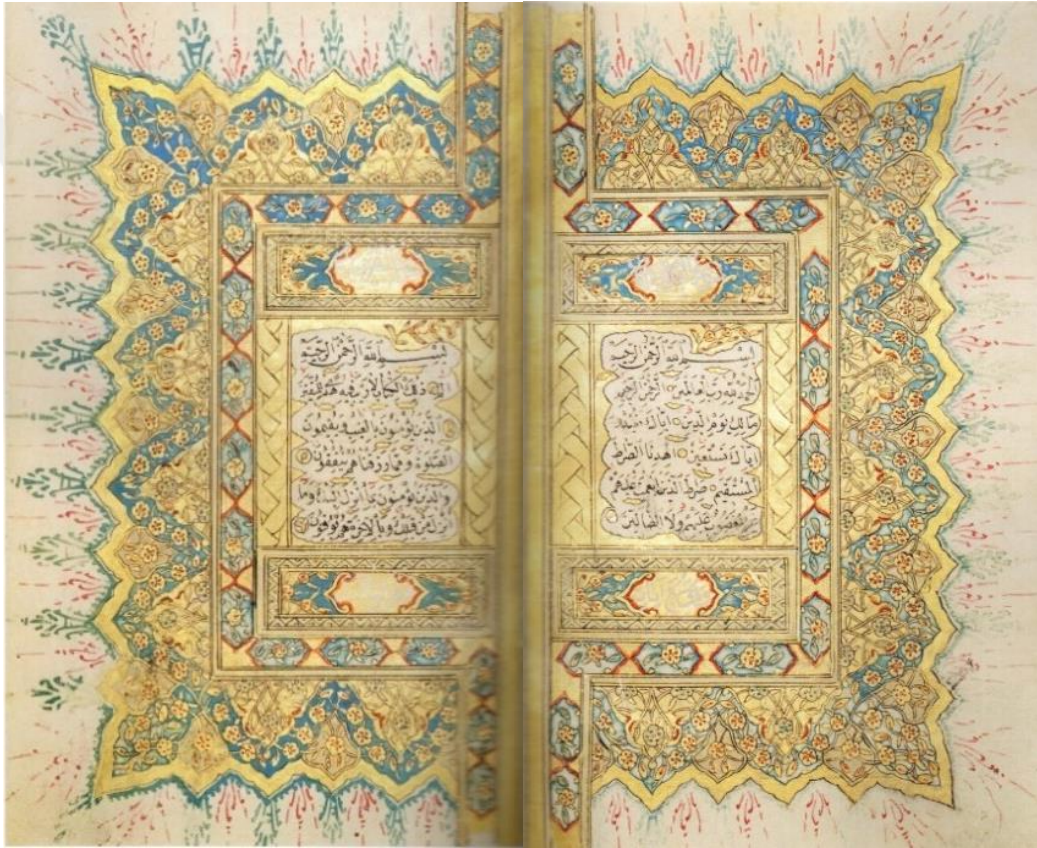 بسم الله الرحمن الرحيم
الحمد لله رب العالمين الرحمن الرحيم
مالك يوم الدين اياك نعبد و
اياك نستعين اهدنا الصراط
المستقيم صراط الذين انعمت عليهم
غير المغضوب عليهم ولا الضالين
بسم الله الرحمن الرحيم
الم ذلك الكتاب لا ريب فيه هدى للمتقين
الذين يؤمنون بالغيب ويقيمون
الصلوة ومما رزقناهم ينفقون
والذين يؤمنون بما انزل اليك وما
انزل من قبلك وبالاخرة هم يوقنون